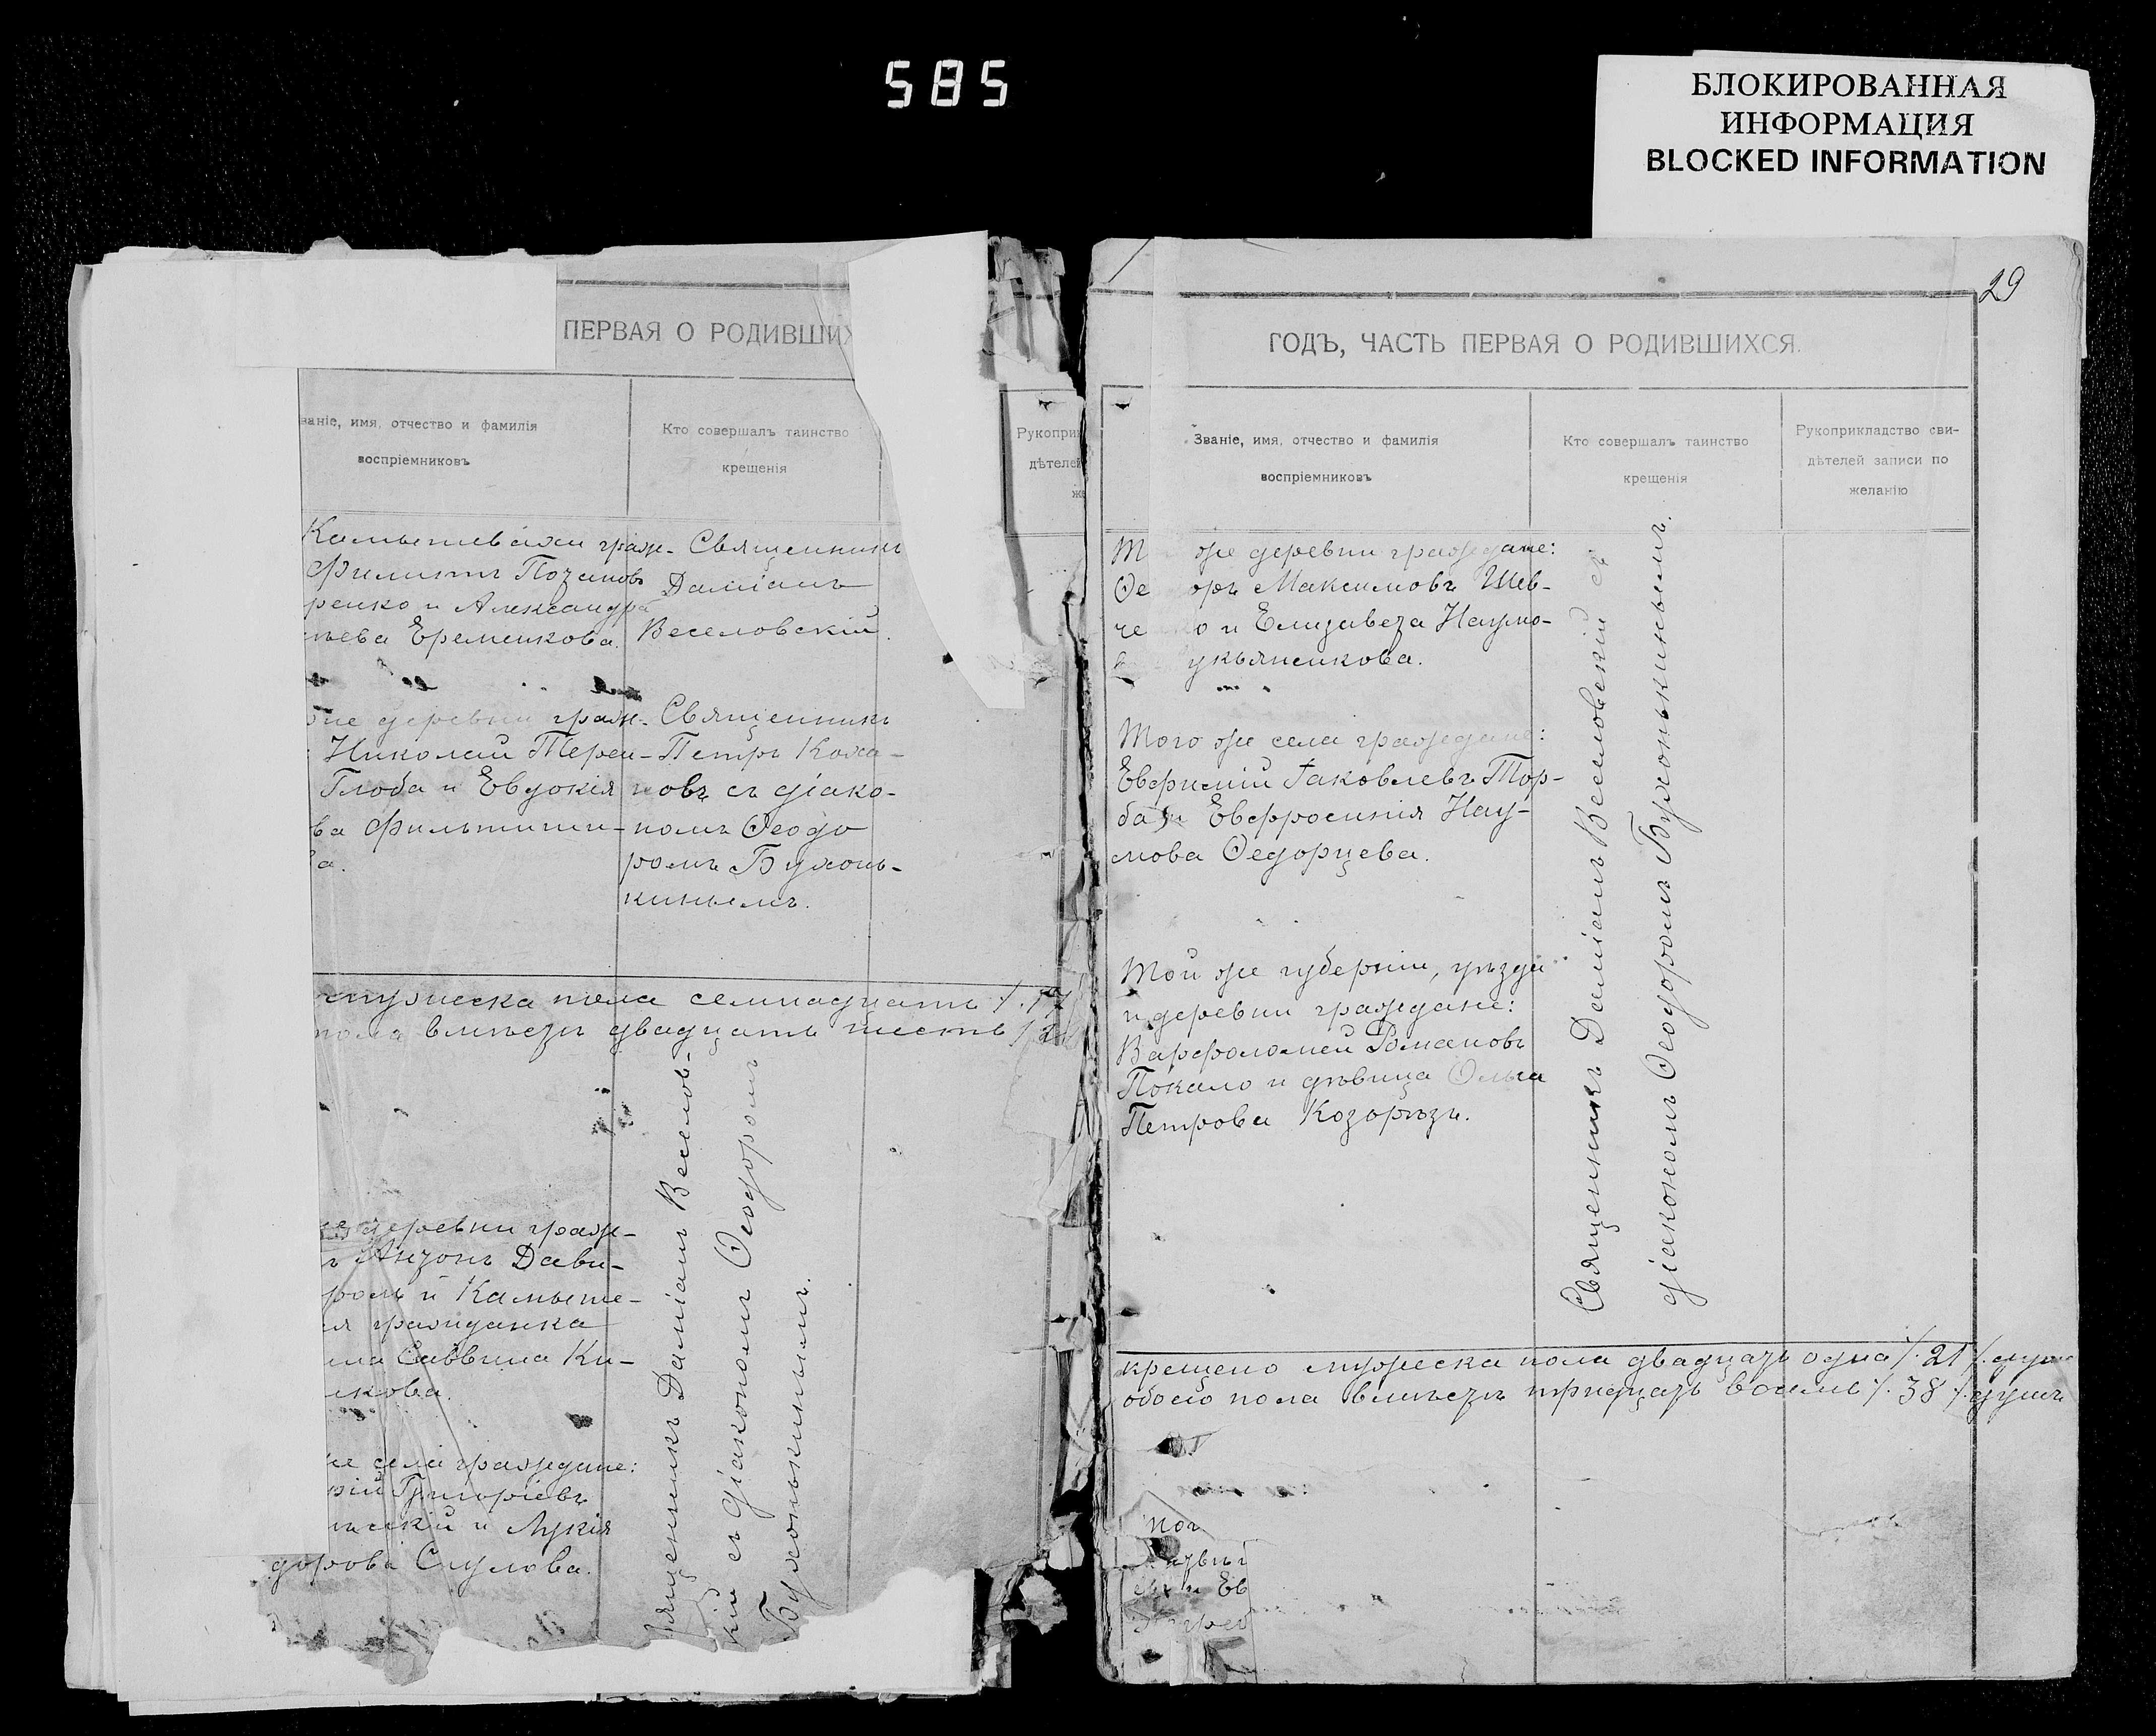 585
БЛОКИРОВАННАЯ
ИНФОРМАЦИЯ
BLOCKED INFORMATION
ПЕРВАЯ О РОДИВШИХ
ваніе, имя, отчество и фамилія
воспріемниковъ
Кто совершалъ таинство
крещенія
Рукоприк
дѣтелей
же
Филиппъ
ренко и Александра
Еременкова.
Священникъ
Даміанъ
Веселовскій.
же деревни граж-
Николай Терен-
Глоба и Евдокія
ва
ва.
Священникъ
Петръ Коха-
новъ съ діако-
номъ Ѳеодо
ромъ Бухонь-
кинымъ.
мужеска пола семнадцать /. 17
пола вмѣстѣ двадцать шесть /
деревни граж-
Антонъ Дави-
и Камыше-
гражданка
Саввина Ки-
кова.
же села граждане:
Григоріевъ
и Лукія
дорова Сулова.
Священникъ Даміанъ Веселов-
кій съ діакономъ Ѳеодоромъ
Бухонькинымъ.
29
ГОДЪ, ЧАСТЬ ПЕРВАЯ О РОДИВШИХСЯ.
Званіе, имя, отчество и фамилія
воспріемниковъ
Кто совершалъ таинство
крещенія
Рукоприкладство сви-
дѣтелей записи по
желанію
же деревни граждане:
Ѳе оръ Максимовъ Шев-
че о и Елизавета Наумо-
укьяненкова.
Того же села граждане:
Евфимій Іаковлевъ Тор-
ба и Евфросинія Нау-
мова Ѳедорцева.
Той же губерніи, уѣзда
и деревни граждане:
Варфоломей Романовъ
Покало и дѣвица Ольга
Петрова Козорѣзъ.
Священникъ Даміанъ Веселовскій съ
діакономъ Ѳеодоромъ Бухонькинымъ.
крещено мужеска пола двадцать одна /. 21 /.
обоего пола вмѣстѣ тридцать восемь /. 38 /. душъ
и Ев